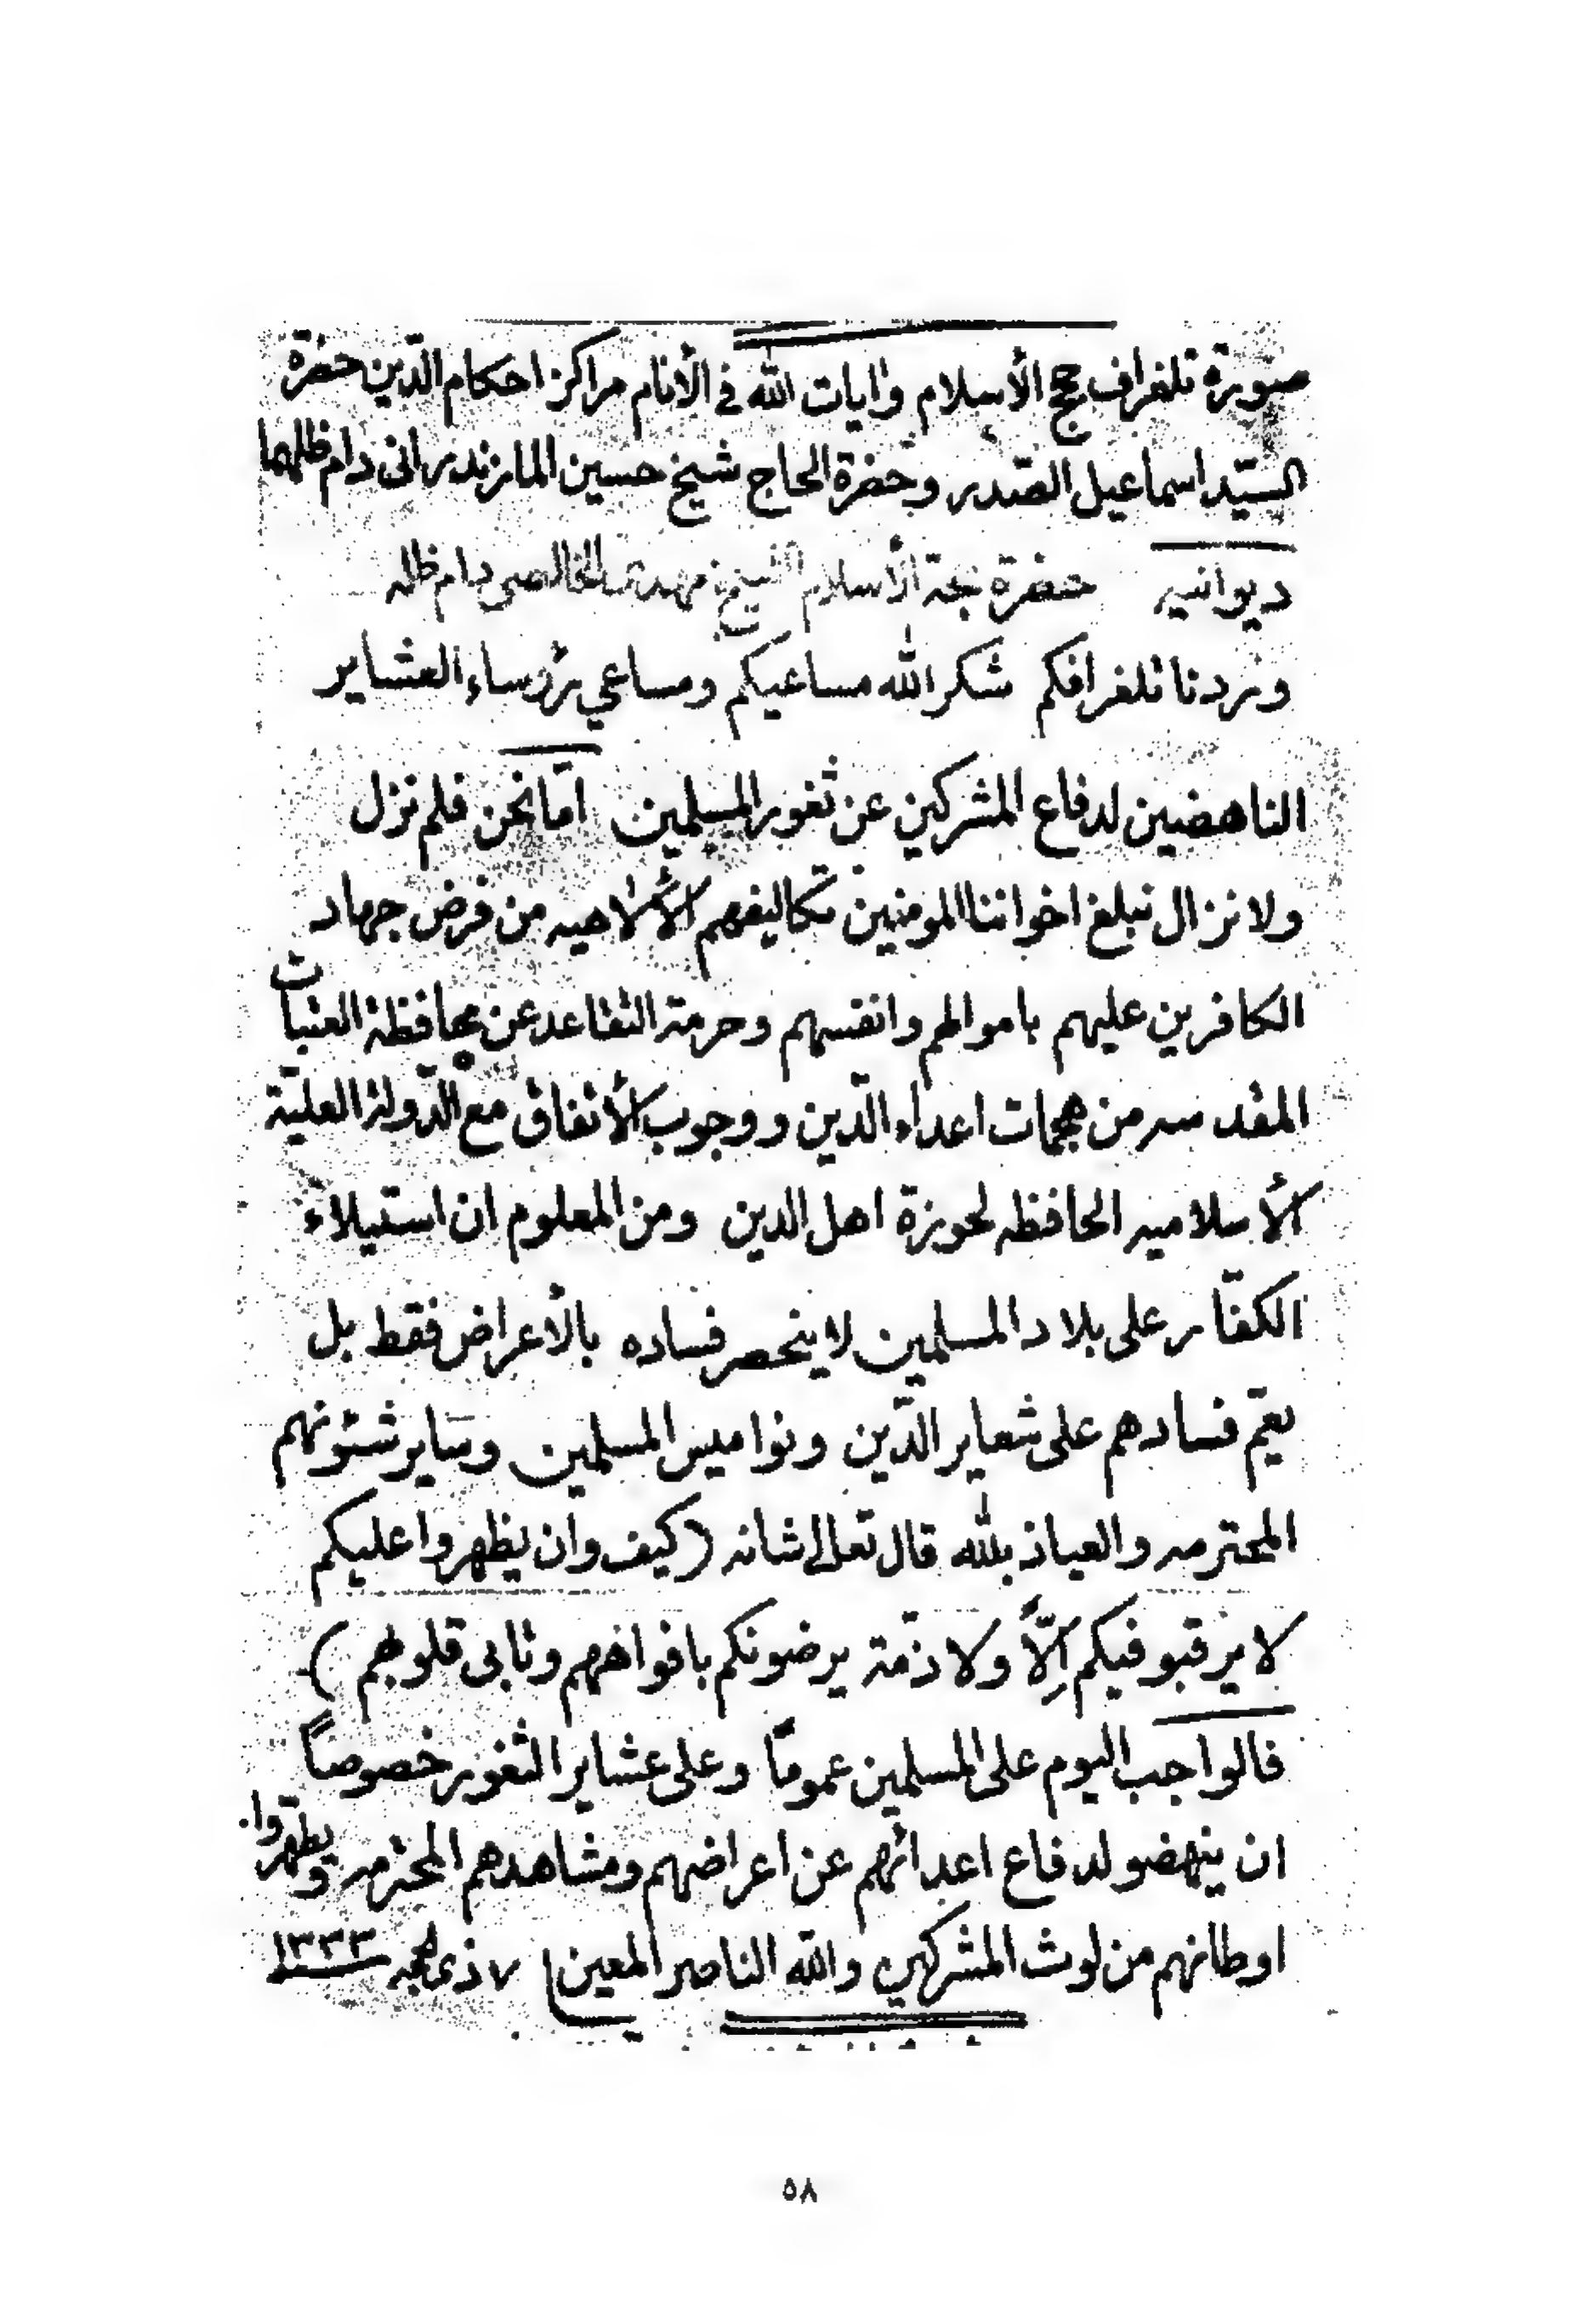 صورة تلغراف حجج الأسلام وايات الله في الأنام مراكز احكام الدّين حضرة
السيّد اسماعيل الصّدر وحضرة الحاج شيخ حسين المازندراني دام ظلهما
ديوانيه حضرة حجة الأسلام الشيخ مهدي الخالصي دام ظله
وردنا تلغرافكم شكر الله مساعيكم ومساعي رؤساء العشاير
الناهضين لدفاع المشركين عن ثغور المسلمين امّا نحن فلم نزل
ولا نزال نبلغ اخواننا المومنين تكاليفهم الألاهيه من فرض جهاد
الكافرين عليهم باموالهم وانفسهم وحرمة التقاعد عن محافظة العتبات
المقدسه من هجمات اعداء الدّين ووجوب الأتفاق مع الدّولة العليّة
الأسلاميه الحافظه لحوزة اهل الدين ومن المعلوم ان استيلاء
الكفّار على بلاد المسلمين لا ينحصر فساده بالأعراض فقط بل
يعمّ فسادهم على شعاير الدّين ونواميس المسلمين وساير شئونهم
المحترمه والعياذ بالله قال تعالى شانه (كيف وان يظهروا عليكم
لا يرقبو فيكم إلّاً ولا ذمّة يرضونكم بافواههم وتابى قلوبهم)
فالواجب اليوم على المسلمين عمومًا وعلى عشاير الثغور خصوصاً
ان ينهضو لدفاع اعدائهم عن اعراضهم ومشاهدهم المحترمه ويطهّروا
اوطانهم من لوث المشركين والله الناصر المعين ٧ ذى حجه ١٣٣٣
٥٨